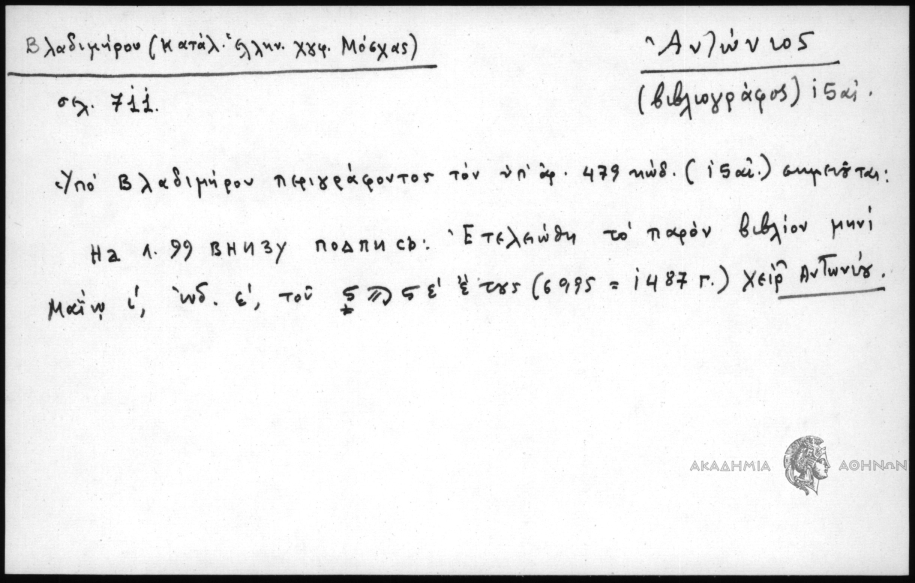 Βλαδιμήρου (Κατάλ. Ἑλλην. χγφ. Μόσχας)
Ἀντώνιος
σελ. 711.
(βιβλιογράφος) 15 αἰ.
Ὑπό Βλαδιμήρου περιγράφοντος τόν ὑπ' ἀρ. 479 κώδ. (15 αἰ.) σημειοῦται:
На л. 99 внизу подпись: Ἐτελειώθη τό παρόν βιβλίον μηνί
Μαΐῳ ι', ἰνδ. ε', τοῦ ἔτους (6995 = 1487 г.) χειρὶ Ἀντωνίου.
ΑΚΑΔΗΜΙΑ ΑΘΗΝΩΝ